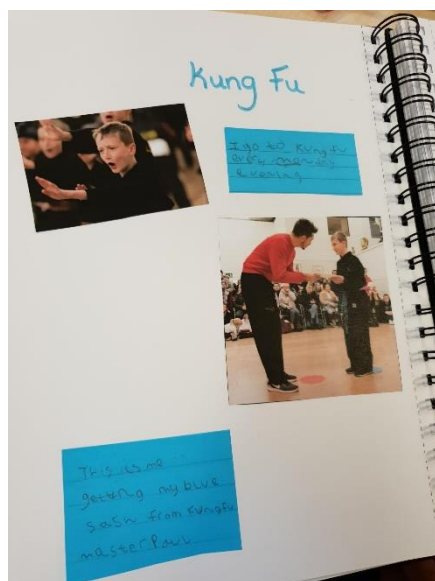 Kung Fu
I go to Kung fu
every monday
evening
This is me
getting my blue
sash from Kungfu
master Paul